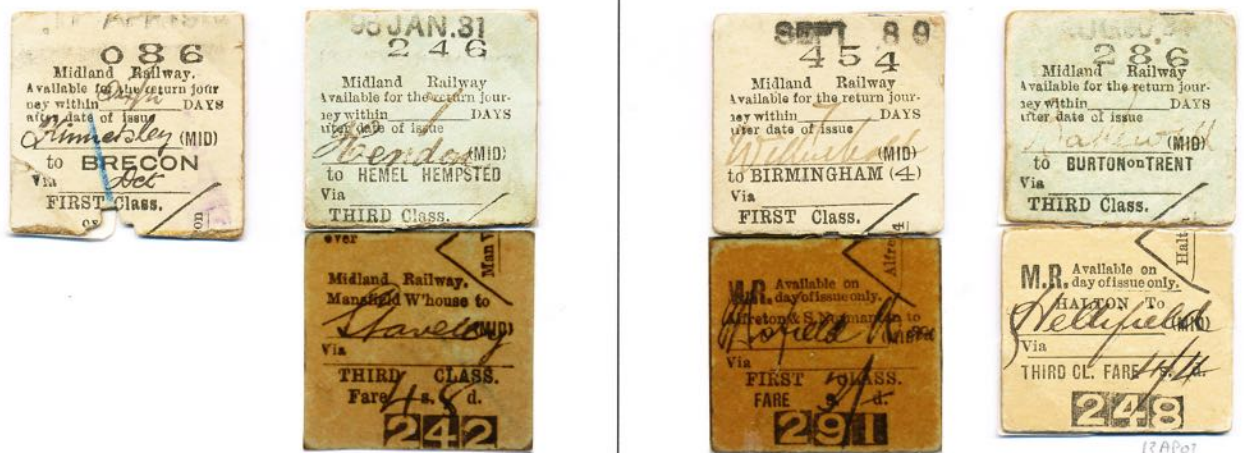 086
Midland Railway.
Available for the return jour
ney within DAYS
after date of issue
Kinnersley (MID)
to BRECON
Via
FIRST Class.
on
JAN.31
246
Midland Railway
Available for the return jour-
ney within DAYS
after date of issue
Hendon (MID)
to HEMEL HEMPSTED
Via
THIRD Class.
ever
Man
Midland Railway.
Mansfield W'house to
Staveley (MID)
Via
THIRD CLASS.
Fare 4 s. 8 d.
242
SEPT 89
454
Midland Railway
Available for the return jour-
ney within DAYS
after date of issue
(MID)
to BIRMINGHAM (4)
Via
FIRST Class.
Alfre
M.R. Available on
day of issue only.
Alfreton & S. Normanton to
(MID)
Via
FIRST CLASS.
FARE s. d.
291
286
Midland Railway
Available for the return jour-
ney within DAYS
after date of issue
(MID)
to BURTON on TRENT
Via
THIRD Class.
Halt
M.R. Available on
day of issue only.
HALTON To
Hellifield (MID)
Via
THIRD CL. FARE s. d.
248